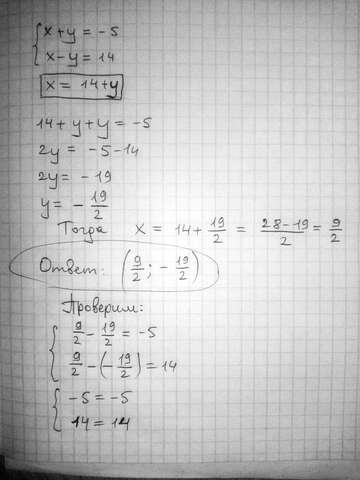 x+y = -5
x-y = 14
x = 14+y
14+y+y = -5
2y = -5-14
2y = -19
y = -19/2
Тогда x = 14+19/2 = (28-19)/2 = 9/2
Ответ: (9/2; -19/2)
Проверим:
9/2 - 19/2 = -5
9/2 - (-19/2) = 14
-5 = -5
14 = 14